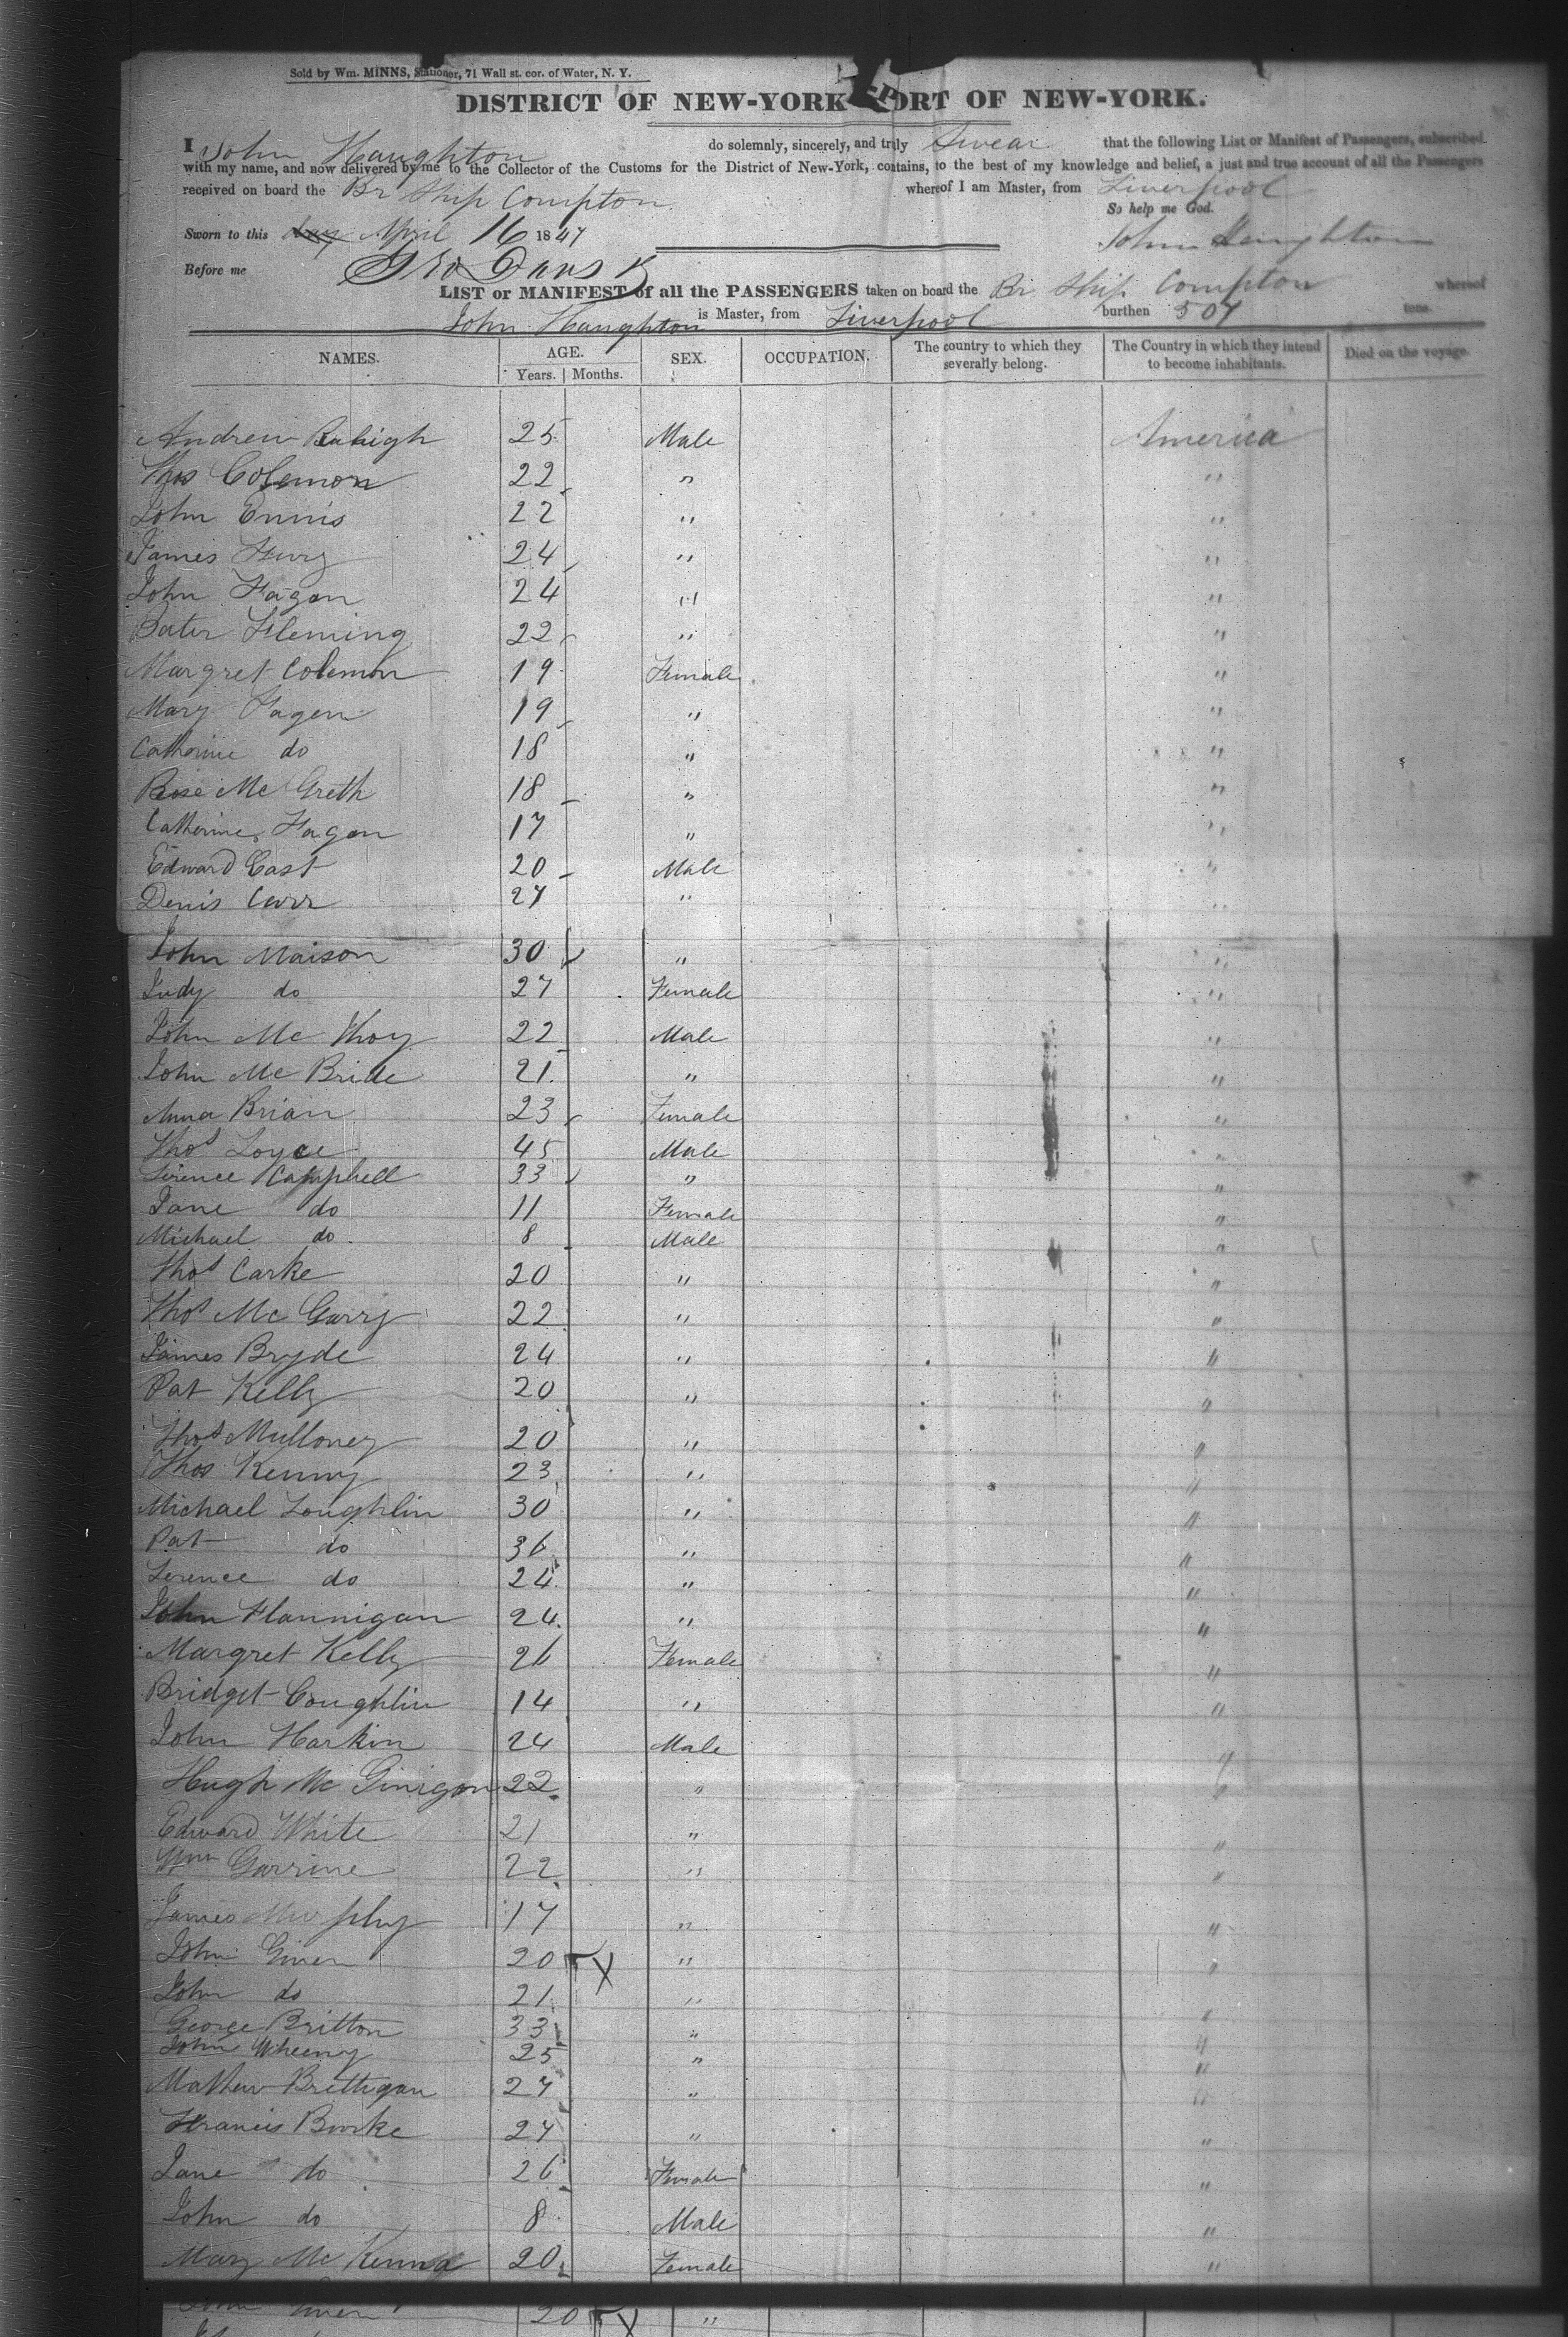 Sold by Wm. MINNS, Stationer, 71 Wall st. cor. of Water, N. Y.
DISTRICT OF NEW-YORK PORT OF NEW-YORK.
I John Haughton do solemnly, sincerely, and truly Swear that the following List or Manifest of Passengers, subscribed
with my name, and now delivered by me to the Collector of the Customs for the District of New-York, contains, to the best of my knowledge and belief, a just and true account of all the Passengers
received on board the Br Ship Compton whereof I am Master, from Liverpool
So help me God.
Sworn to this April 16 1847 John Haughton
Before me
LIST or MANIFEST of all the PASSENGERS taken on board the Br Ship Compton whereof
John Haughton is Master, from Liverpool burthen 507 tons.
NAMES. AGE. Years. Months. SEX. OCCUPATION. The country to which they severally belong. The Country in which they intend to become inhabitants. Died on the voyage.
Andrew 25 Male America
Thos Colemon 22 " "
John Ennis 22 " "
James 24 " "
John Fagan 24 " "
Pater Fleming 22 " "
Margret Colemon 19 Female "
Mary Fagen 19 " "
Catherine do 18 " "
Rose Mc Greth 18 " "
Catherine Fagan 17 " "
Edward Cast 20 Male "
Denis Carr 27 " "
John Maison 30 " "
Judy do 27 Female "
John Mc 22 Male "
John Mc Bride 21 " "
Anna Brian 23 Female "
Thos Loyce 45 Male "
Terence Campbell 33 " "
Jane do 11 Female "
Michael do 8 Male "
Thos Carke 20 " "
Thos Mc Garry 22 " "
James Bryde 24 " "
Pat Kelly 20 " "
Thos Mulloney 20 " "
Thos Kenny 23 " "
Michael Loughlin 30 " "
Pat do 36 " "
Terence do 24 " "
John Flannigan 24 " "
Margret Kelly 26 Female "
Bridget Coughlin 14 " "
John Harkin 24 Male "
Hugh Mc Ginigan 22 " "
Edward White 21 " "
Wm Garrine 22 " "
James Murphy 17 " "
John Given 20 X " "
John do 21 " "
George Britton 33 " "
John Wheeny 25 " "
Mathew Brettigan 27 " "
Francis Burke 27 " "
Jane do 26 Female "
John do 8 Male "
Mary Mc Kenna 20 Female "
John Given 20 X "